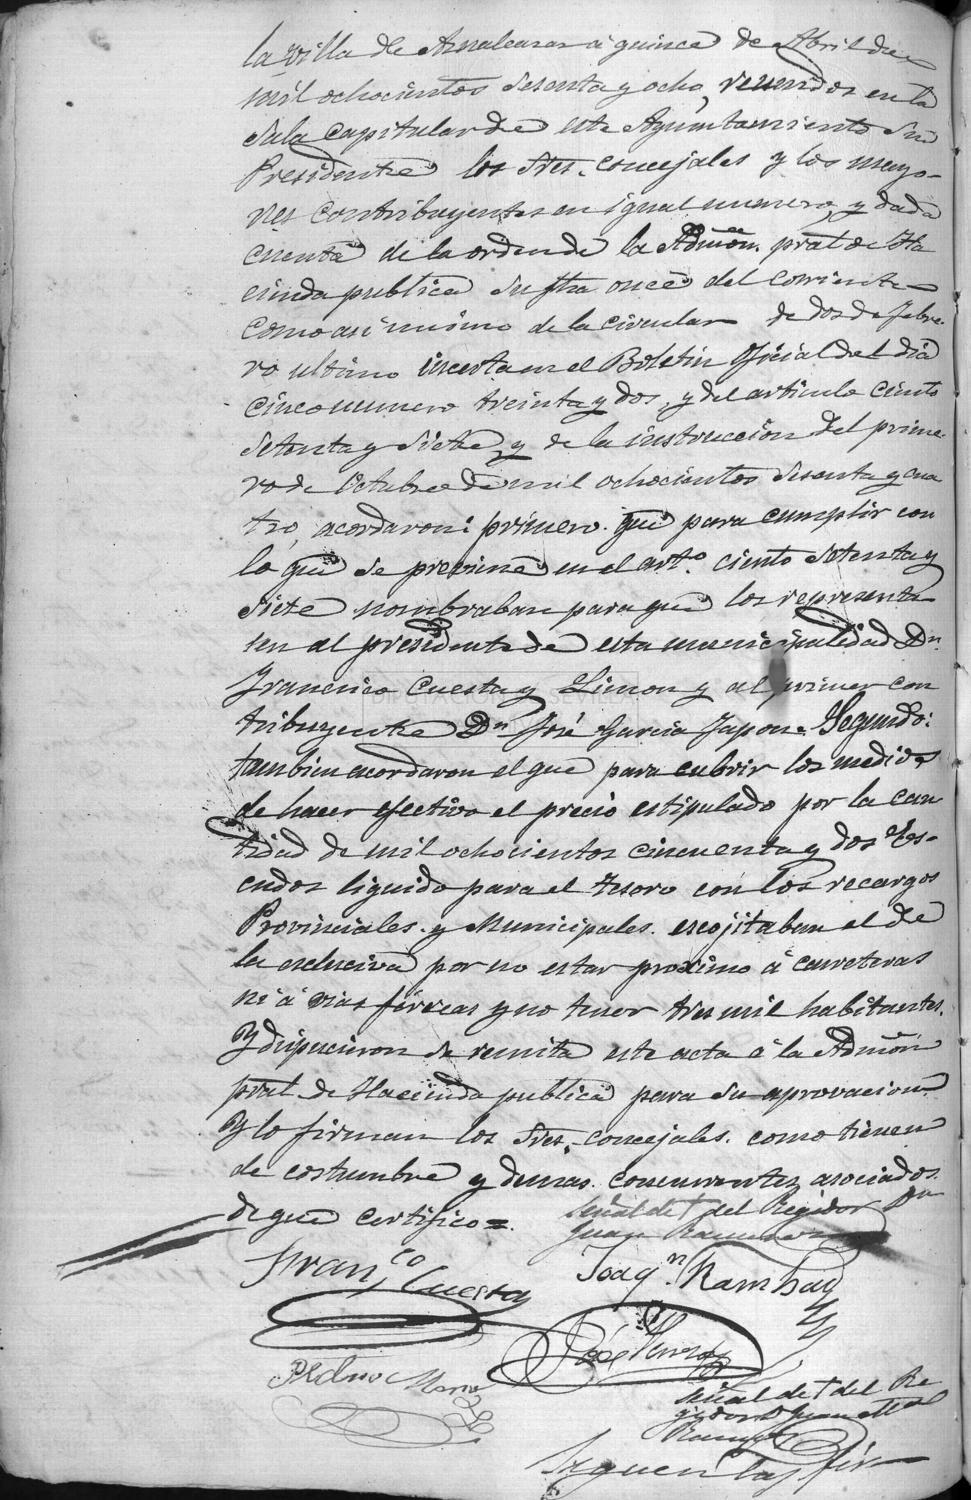 la villa de Aznalcazar á quince de Abril de
mil ochocientos sesenta y ocho, reunidos en la
Sala Capitular de este Ayuntamiento su
Presidente los Sres. concejales y los mayo-
res contribuyentes en igual numero, y dada
cuenta de la orden de la Admon. pral de Ha
cienda publica su fha once del corriente
como asi mismo de la circular de dos de Febre-
ro ultimo incerta en el Boletin Oficial del dia
cinco numero treinta y dos, y del articulo ciento
setenta y siete, y de la instruccion del prime-
ro de Octubre de mil ochocientos sesenta y cua
tro, acordaron: primero. que para cumplir con
lo que se previene en el arto. ciento setenta y
siete nombraban para que los representa
sen al presidente de esta municipalidad Dn.
Francisco Cuesta y Limon y al primer con
tribuyente Dn José Garcia Japon. Segundo:
tambien acordaron el que para cubrir los medios
de hacer efectivo el precio estipulado por la can
tidad de mil ochocientos cincuenta y dos Es-
cudos liquido para el tesoro con los recargos
Provinciales. y Municipales. escojitaban el de
la esclusiva por no estar proximo á carreteras
ni á vias ferreas y no tener tres mil habitantes.
Y dispucieron se remita este acta á la Admon
pral. de Hacienda publica para su aprovacion
Y lo firman los Sres. concejales. como tienen
de costumbre y demas. concurrentes asociados
de que certifico=.
Señal de † del Regidor Dn
Juan
Franco Cuesta
Joaqn. Rambay
José
Pedro Mora
Señal de † del Re
gidor D Juan
Siguen las fir
DIPUTACIÓN DE SEVILLA